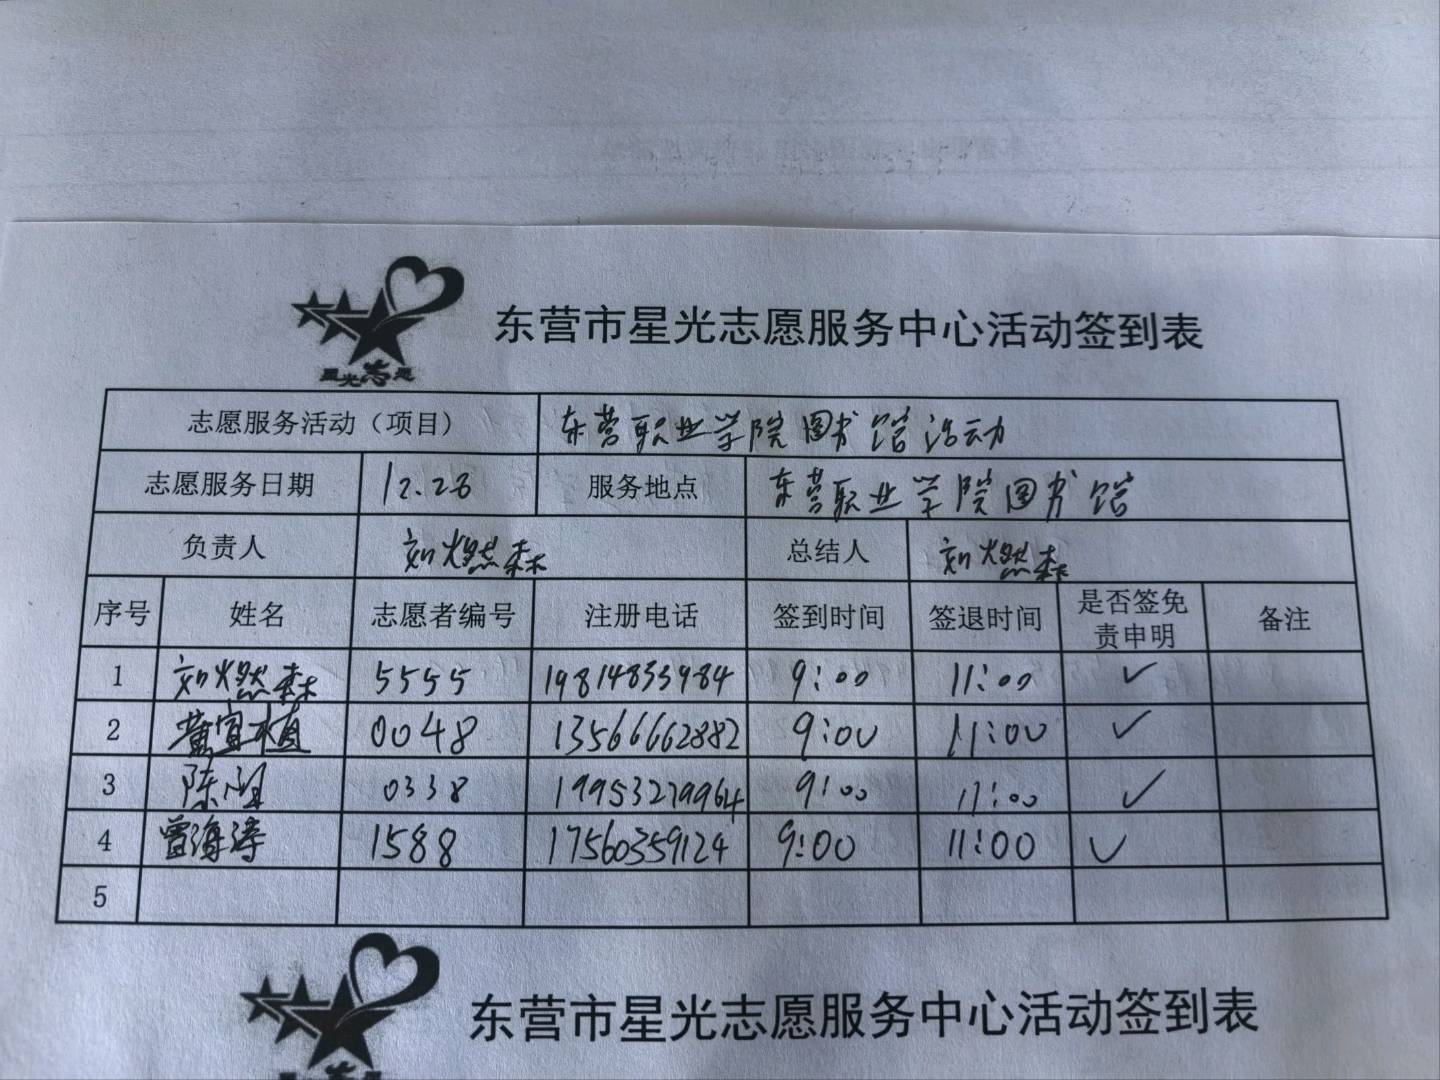 星光志愿
东营市星光志愿服务中心活动签到表
志愿服务活动（项目） 东营职业学院图书馆活动
志愿服务日期 12.23 服务地点 东营职业学院图书馆
负责人 刘燃森 总结人 刘燃森
序号 姓名 志愿者编号 注册电话 签到时间 签退时间 是否签免责申明 备注
1 刘燃森 5555 19814833984 9:00 11:00 ✓
2 黄宜植 0048 13566662882 9:00 11:00 ✓
3 陈 0338 19953279964 9:00 11:00 ✓
4 曾海涛 1588 17560359124 9:00 11:00 ✓
5
东营市星光志愿服务中心活动签到表